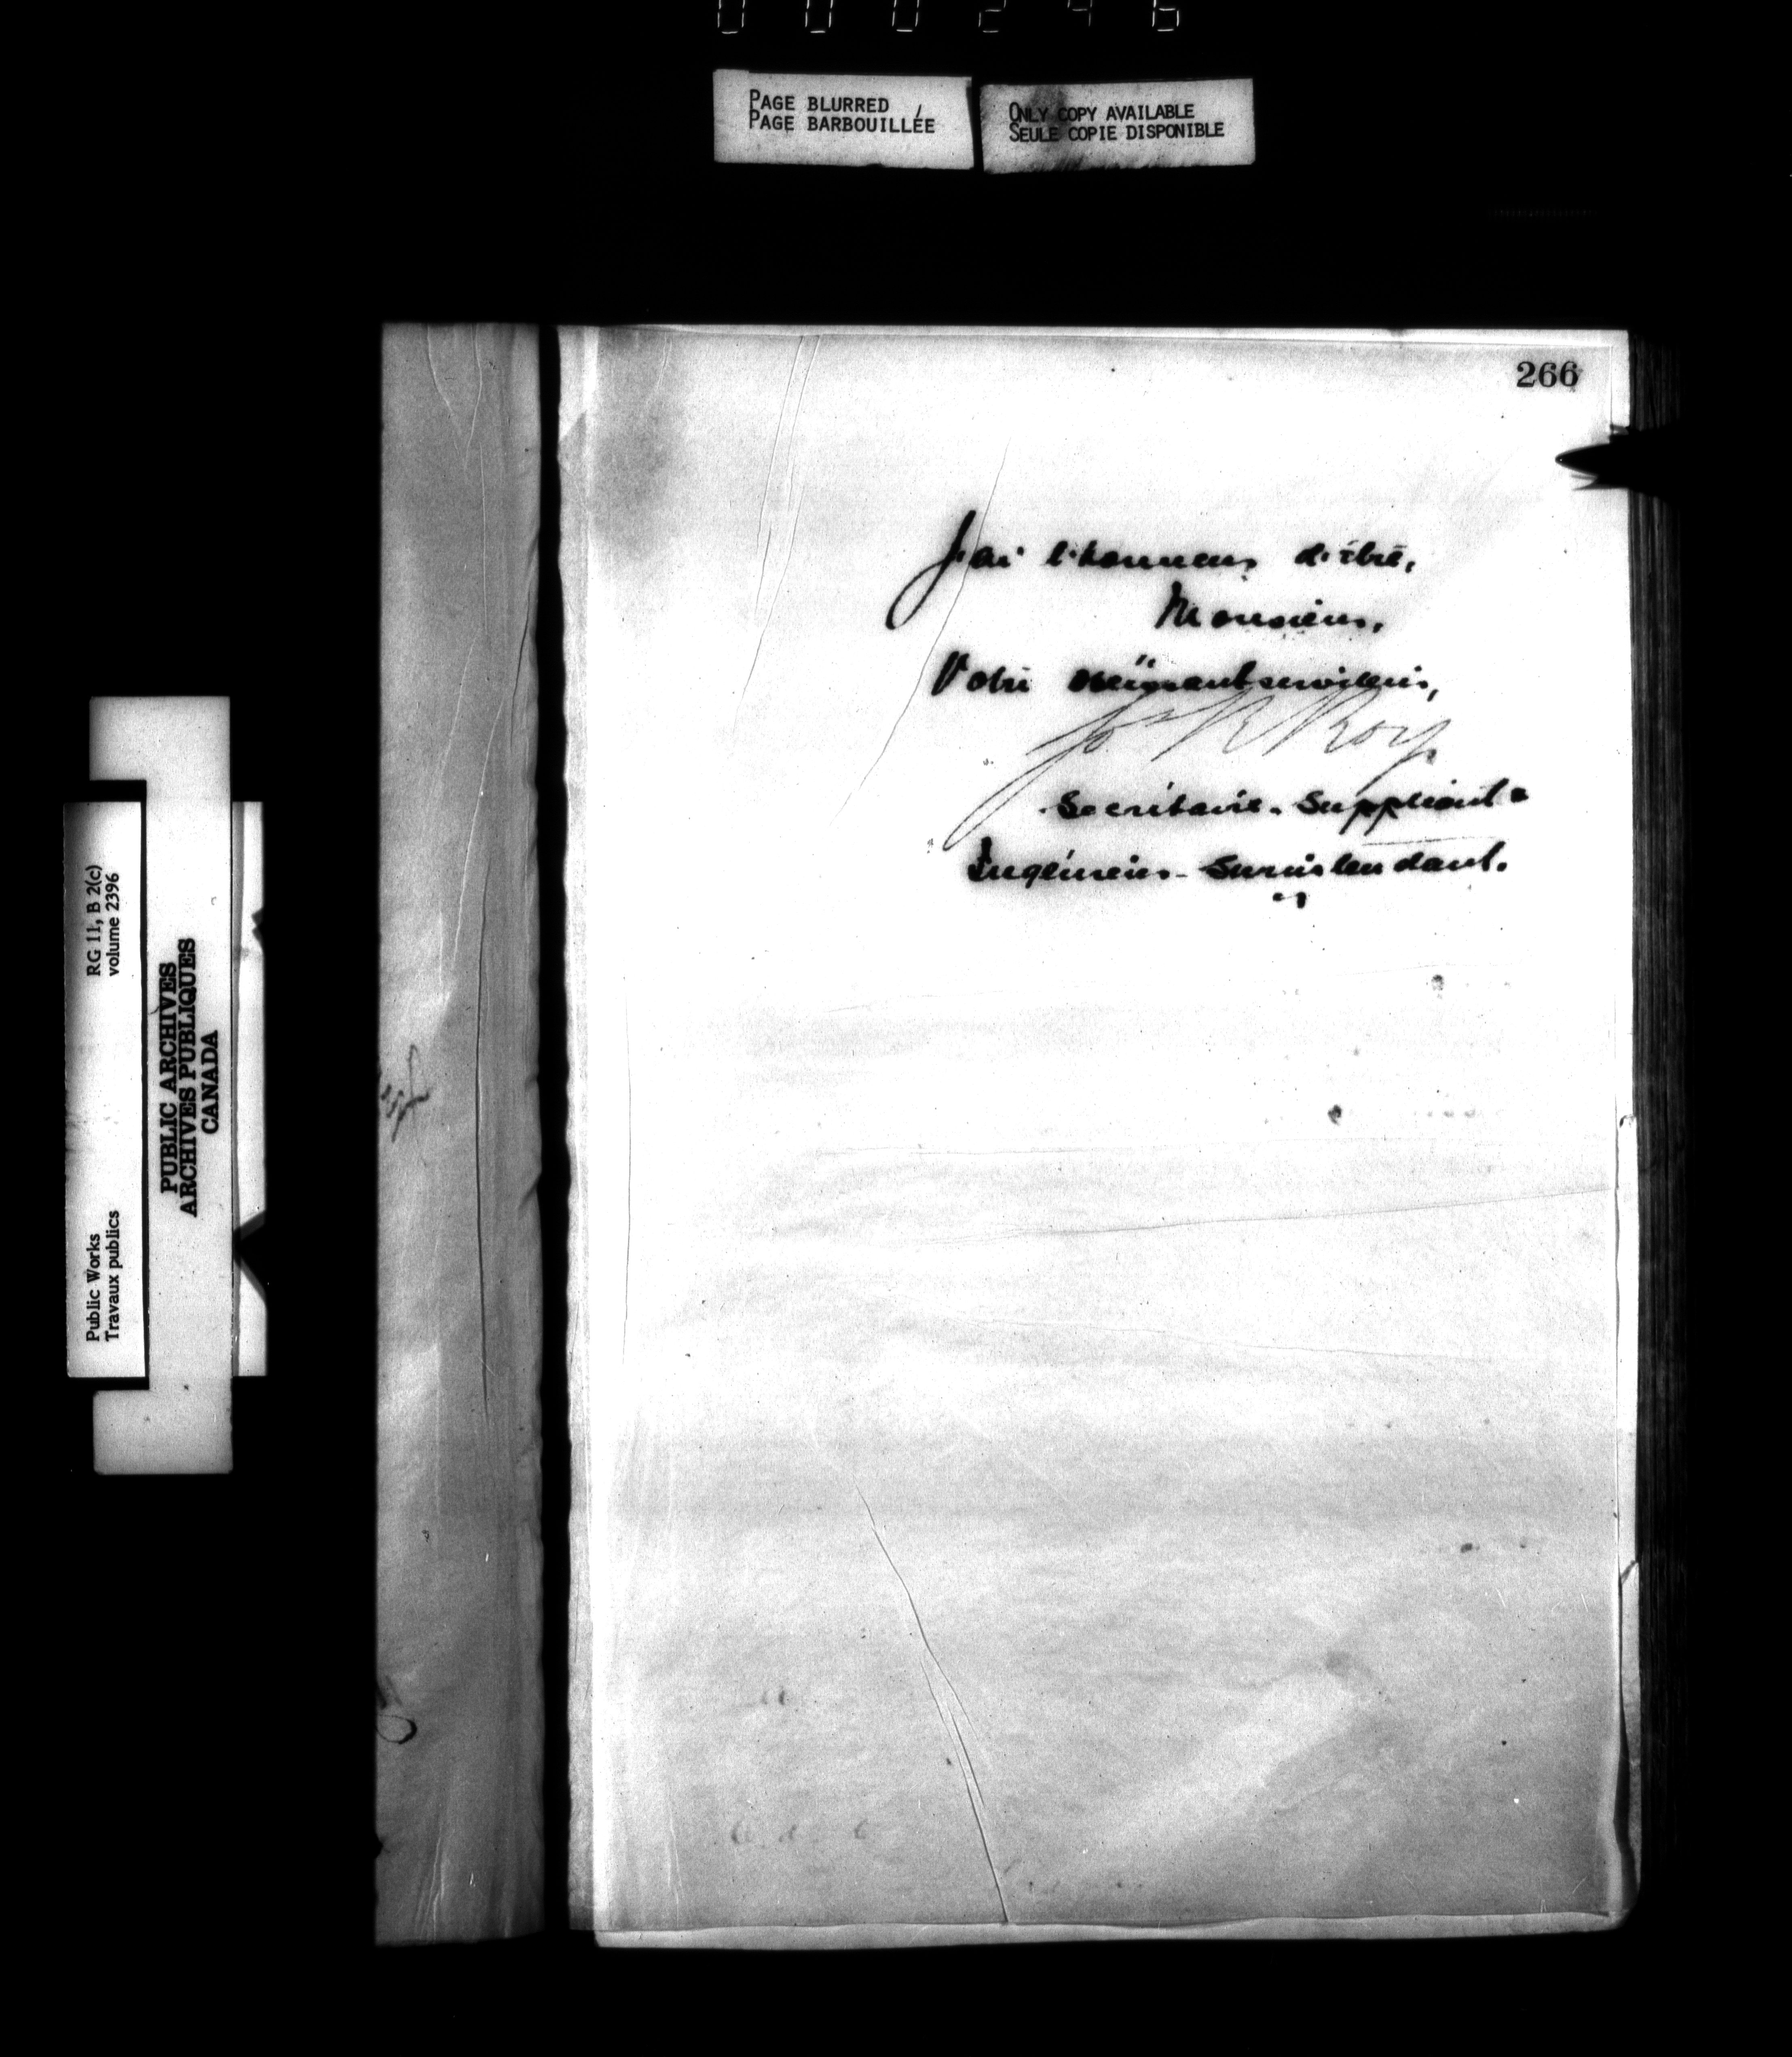 PAGE BLURRED
PAGE BARBOUILLÉE
ONLY COPY AVAILABLE
SEULE COPIE DISPONIBLE
266
J'ai l'honneur d'être,
Monsieur,
Votre obéissant serviteur,
Jos R Roy
Secrétaire-Suppléant &
Ingénieur-Surintendant.
RG 11, B 2(c)
volume 2396
Public Works
Travaux publics
PUBLIC ARCHIVES
ARCHIVES PUBLIQUES
CANADA